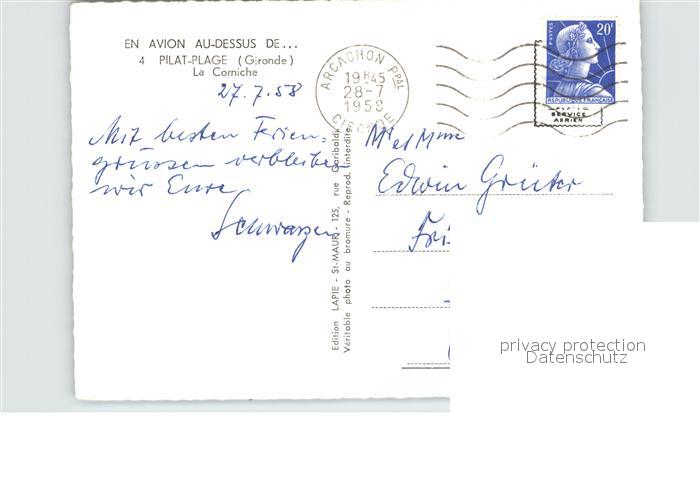 EN AVION AU-DESSUS DE...
4 PILAT-PLAGE (Gironde)
La Corniche
27.7.58
Mit besten Ferien-
grüssen verbleiben
wir Eure
Edition LAPIE - St-MAUR - 125, rue Garibaldi
Véritable photo au bromure - Reprod. interdite
ARCACHON PPAL
19H45
28-7
1958
GIRONDE
POSTES
20F
REPUBLIQUE FRANÇAISE
SERVICE
AERIEN
Mr et Mme
Edwin Grüter
privacy protection
Datenschutz